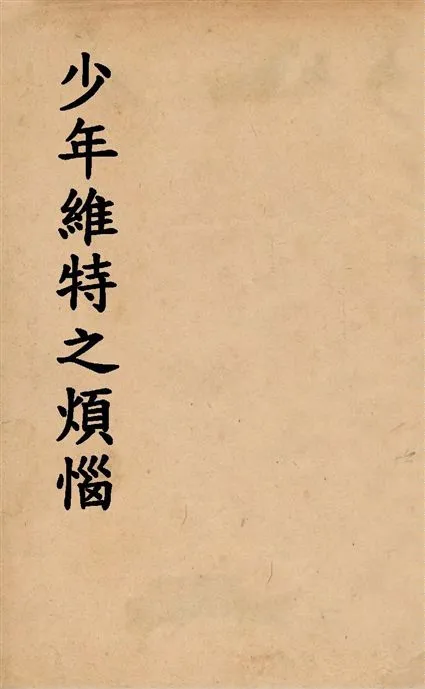 少年維特之煩惱